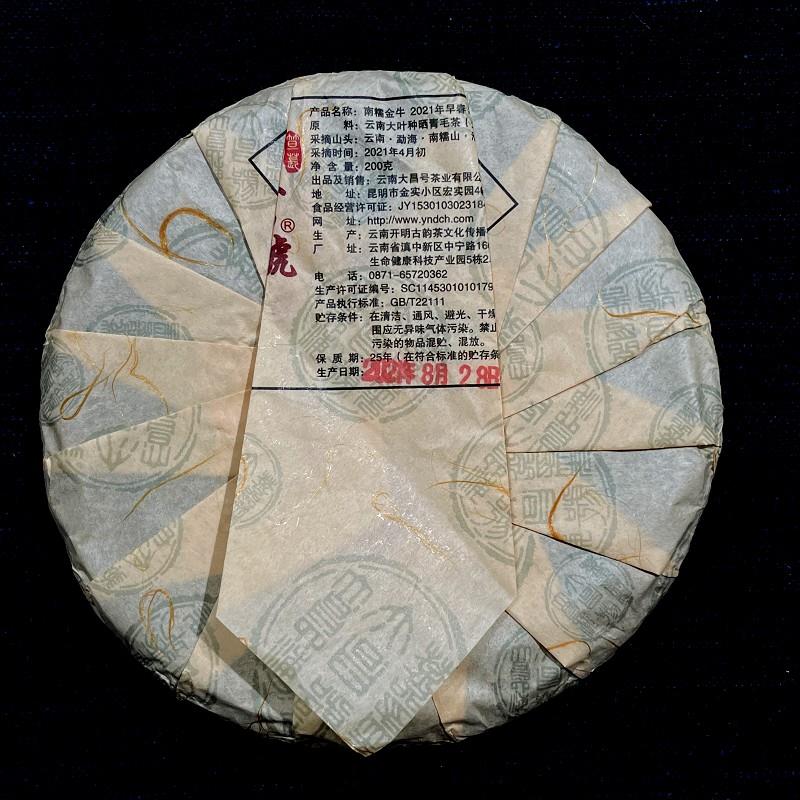 产品名称：南糯金牛 2021年早春
原　　料：云南大叶种晒青毛茶（
采摘山头：云南·勐海·南糯山·
采摘时间：2021年4月初
净 含 量：200克
出品及销售：云南大昌号茶业有限公
地　　址：昆明市金实小区宏实园4
食品经营许可证：JY1530103023184
网　　址：http://www.yndch.com
生　　产：云南开明古韵茶文化传播
厂　　址：云南省滇中新区中宁路16
生命健康科技产业园5栋2
电　　话：0871-65720362
生产许可证编号：SC1145301010179
产品执行标准：GB/T22111
贮存条件：在清洁、通风、避光、干燥
围应无异味气体污染。禁止
污染的物品混贮、混放。
保 质 期：25年（在符合标准的贮存条
生产日期：2021年 8月 2 8日
®
號